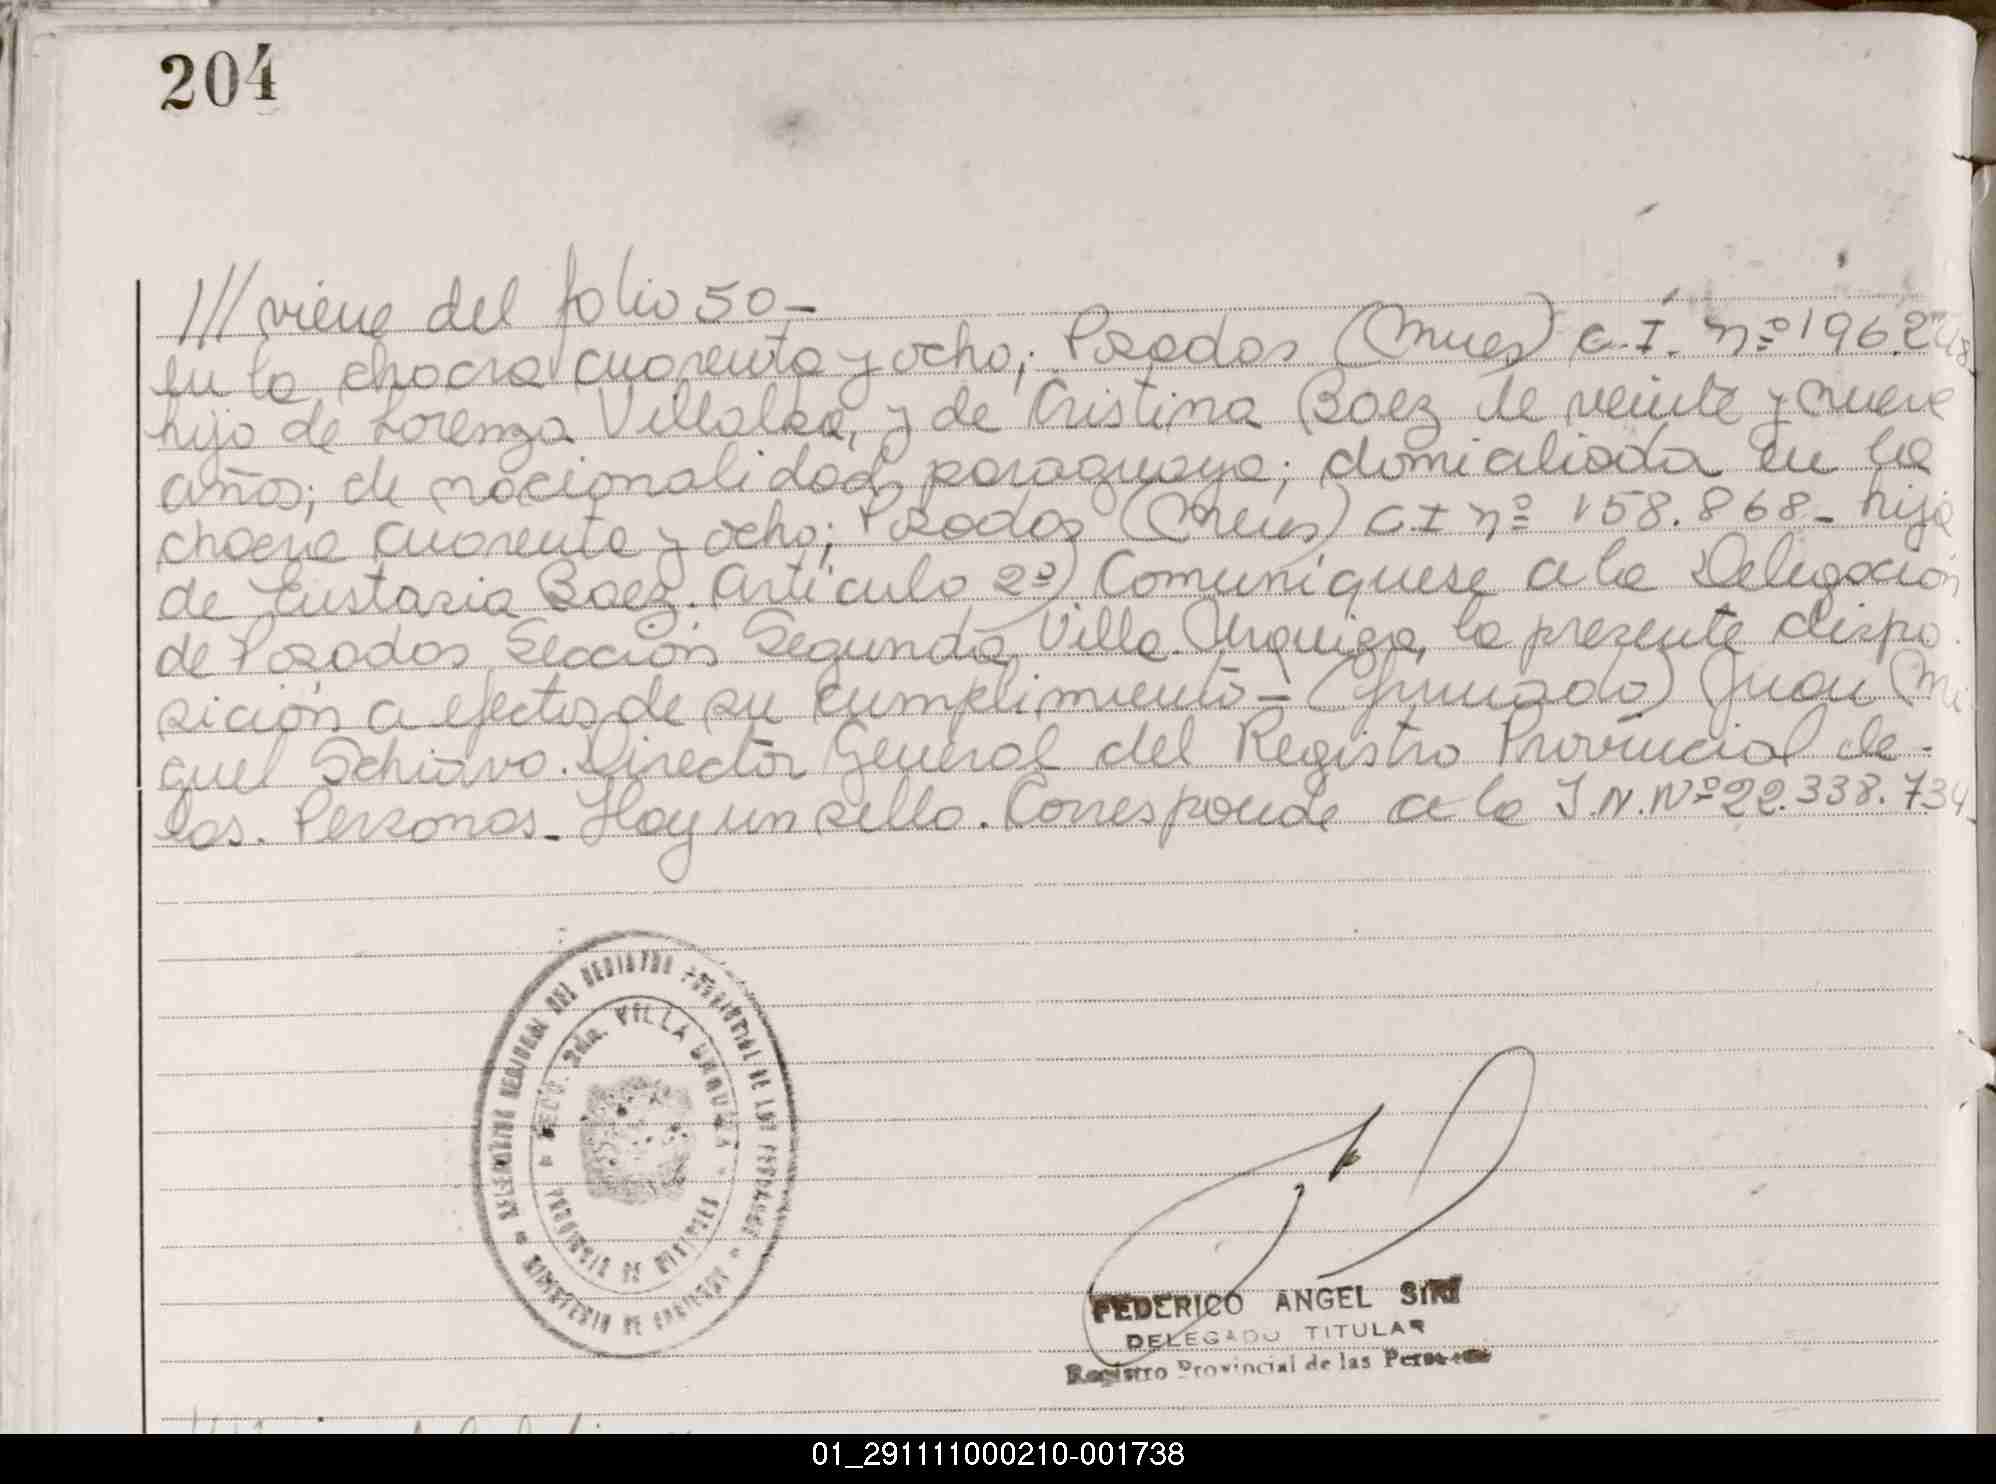 204
/// viene del folio 50-
en la chacra cuarenta y ocho; Posadas (Mnes) C.I. nº 196.248
hijo de Lorenza Villalba, y de Cristina Baez de veinte y nueve
años; de nacionalidad paraguaya; domicaliada en la
chacra cuarenta y ocho; Posadas (Mnes) C.I nº 158.868- hija
de Eustasia Baez. Artículo 2º) Comuníquese a la Delegación
de Posadas Sección Segunda Villa Urquiza, la presente dispo
sición a efectos de su cumplimiento- (firmado) Juan Mi
guel Schiavo. Director General del Registro Provincial de-
las. Personas- Hay un sello. Corresponde a la I.N.Nº 22.338.734-
DELEGACION REGIONAL DEL REGISTRO PROVINCIAL DE LAS PERSONAS
SECC. 2da. VILLA URQUIZA
PROVINCIA DE MISIONES
MINISTERIO DE GOBIERNO
FEDERICO ANGEL SIRI
DELEGADO TITULAR
Registro Provincial de las Personas
01_291111000210-001738